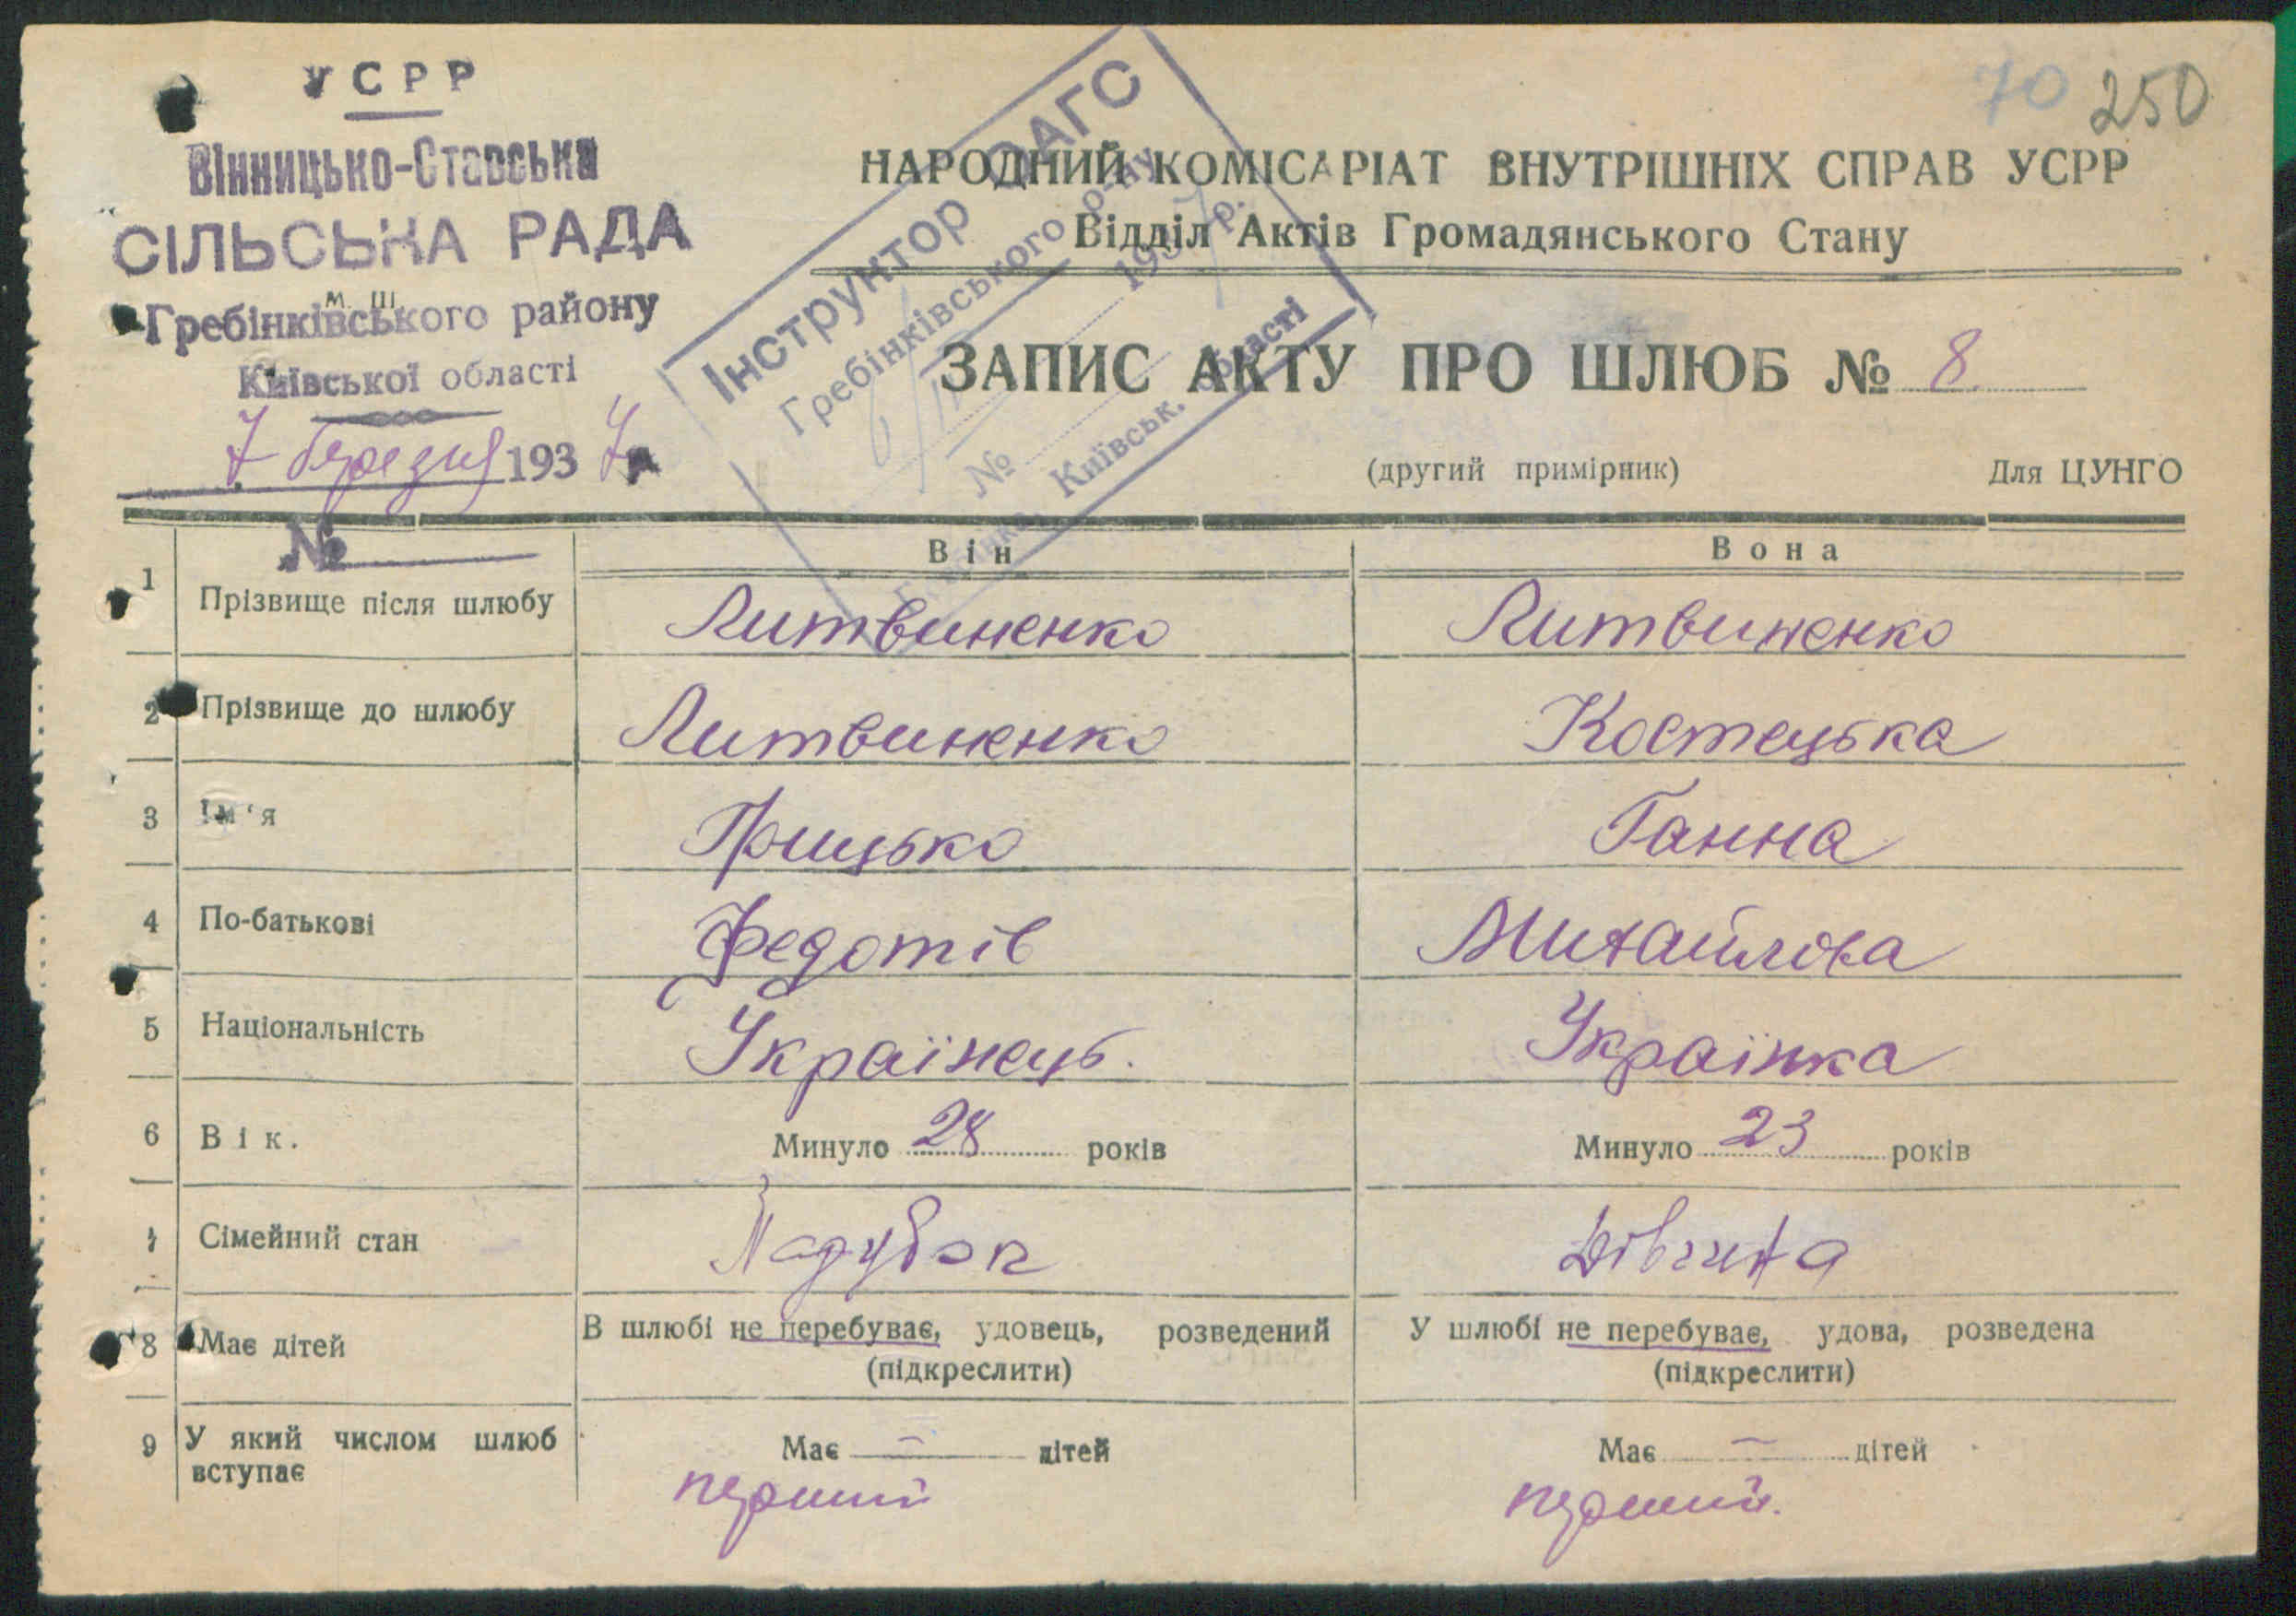 УСРР
Вінницько-Ставська
СІЛЬСЬКА РАДА
м. ш.
Гребінківського району
Київської області
7 березня 1937 р
№
Інструктор ЗАГС
Гребінківського р-ну
1937 р.
№
Київськ. області
70 250
НАРОДНИЙ КОМІСАРІАТ ВНУТРІШНІХ СПРАВ УСРР
Відділ Актів Громадянського Стану
ЗАПИС АКТУ ПРО ШЛЮБ № 8.
(другий примірник) Для ЦУНГО
Він Вона
1 Прізвище після шлюбу Литвиненко Литвиненко
2 Прізвище до шлюбу Литвиненко Костецька
3 Ім'я Грицько Ганна
4 По-батькові Федотів Михайлова
5 Національність Українець. Українка
6 Вік. Минуло 28 років Минуло 23 років
7 Сімейний стан Парубок Дівчина
8 Має дітей В шлюбі не перебуває, удовець, розведений У шлюбі не перебуває, удова, розведена
(підкреслити) (підкреслити)
9 У який числом шлюб вступає Має — дітей Має — дітей
перший перший.